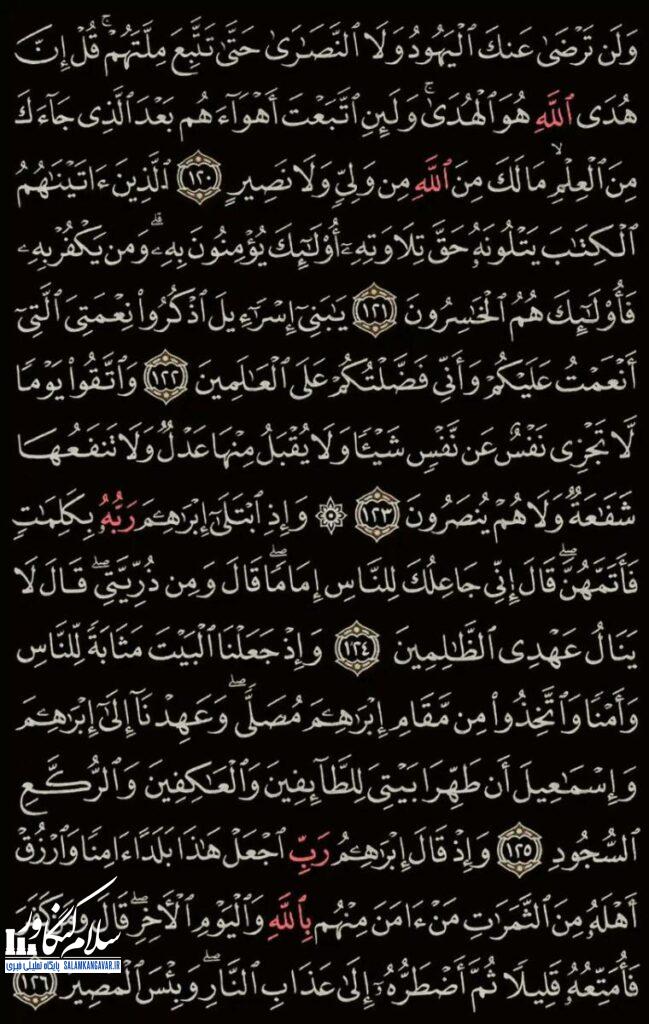 وَلَن تَرۡضَىٰ عَنكَ ٱلۡيَهُودُ وَلَا ٱلنَّصَٰرَىٰ حَتَّىٰ تَتَّبِعَ مِلَّتَهُمۡۗ قُلۡ إِنَّ
هُدَى ٱللَّهِ هُوَ ٱلۡهُدَىٰۗ وَلَئِنِ ٱتَّبَعۡتَ أَهۡوَآءَهُم بَعۡدَ ٱلَّذِي جَآءَكَ
مِنَ ٱلۡعِلۡمِ مَا لَكَ مِنَ ٱللَّهِ مِن وَلِيّٖ وَلَا نَصِيرٍ ١٢٠ ٱلَّذِينَ ءَاتَيۡنَٰهُمُ
ٱلۡكِتَٰبَ يَتۡلُونَهُۥ حَقَّ تِلَاوَتِهِۦٓ أُوْلَٰٓئِكَ يُؤۡمِنُونَ بِهِۦۗ وَمَن يَكۡفُرۡ بِهِۦ
فَأُوْلَٰٓئِكَ هُمُ ٱلۡخَٰسِرُونَ ١٢١ يَٰبَنِيٓ إِسۡرَٰٓءِيلَ ٱذۡكُرُواْ نِعۡمَتِيَ ٱلَّتِيٓ
أَنۡعَمۡتُ عَلَيۡكُمۡ وَأَنِّي فَضَّلۡتُكُمۡ عَلَى ٱلۡعَٰلَمِينَ ١٢٢ وَٱتَّقُواْ يَوۡمٗا
لَّا تَجۡزِي نَفۡسٌ عَن نَّفۡسٖ شَيۡـٔٗا وَلَا يُقۡبَلُ مِنۡهَا عَدۡلٞ وَلَا تَنفَعُهَا
شَفَٰعَةٞ وَلَا هُمۡ يُنصَرُونَ ١٢٣ ۞ وَإِذِ ٱبۡتَلَىٰٓ إِبۡرَٰهِـۧمَ رَبُّهُۥ بِكَلِمَٰتٖ
فَأَتَمَّهُنَّۖ قَالَ إِنِّي جَاعِلُكَ لِلنَّاسِ إِمَامٗاۖ قَالَ وَمِن ذُرِّيَّتِيۖ قَالَ لَا
يَنَالُ عَهۡدِي ٱلظَّٰلِمِينَ ١٢٤ وَإِذۡ جَعَلۡنَا ٱلۡبَيۡتَ مَثَابَةٗ لِّلنَّاسِ
وَأَمۡنٗا وَٱتَّخِذُواْ مِن مَّقَامِ إِبۡرَٰهِـۧمَ مُصَلّٗىۖ وَعَهِدۡنَآ إِلَىٰٓ إِبۡرَٰهِـۧمَ
وَإِسۡمَٰعِيلَ أَن طَهِّرَا بَيۡتِيَ لِلطَّآئِفِينَ وَٱلۡعَٰكِفِينَ وَٱلرُّكَّعِ
ٱلسُّجُودِ ١٢٥ وَإِذۡ قَالَ إِبۡرَٰهِـۧمُ رَبِّ ٱجۡعَلۡ هَٰذَا بَلَدًا ءَامِنٗا وَٱرۡزُقۡ
أَهۡلَهُۥ مِنَ ٱلثَّمَرَٰتِ مَنۡ ءَامَنَ مِنۡهُم بِٱللَّهِ وَٱلۡيَوۡمِ ٱلۡأٓخِرِۚ قَالَ وَمَن كَفَرَ
فَأُمَتِّعُهُۥ قَلِيلٗا ثُمَّ أَضۡطَرُّهُۥٓ إِلَىٰ عَذَابِ ٱلنَّارِۖ وَبِئۡسَ ٱلۡمَصِيرُ ١٢٦
سلام کنگاور
پایگاه تحلیلی خبری SALAMKANGAVAR.IR